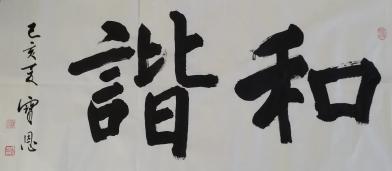 和諧
己亥夏 寶恩